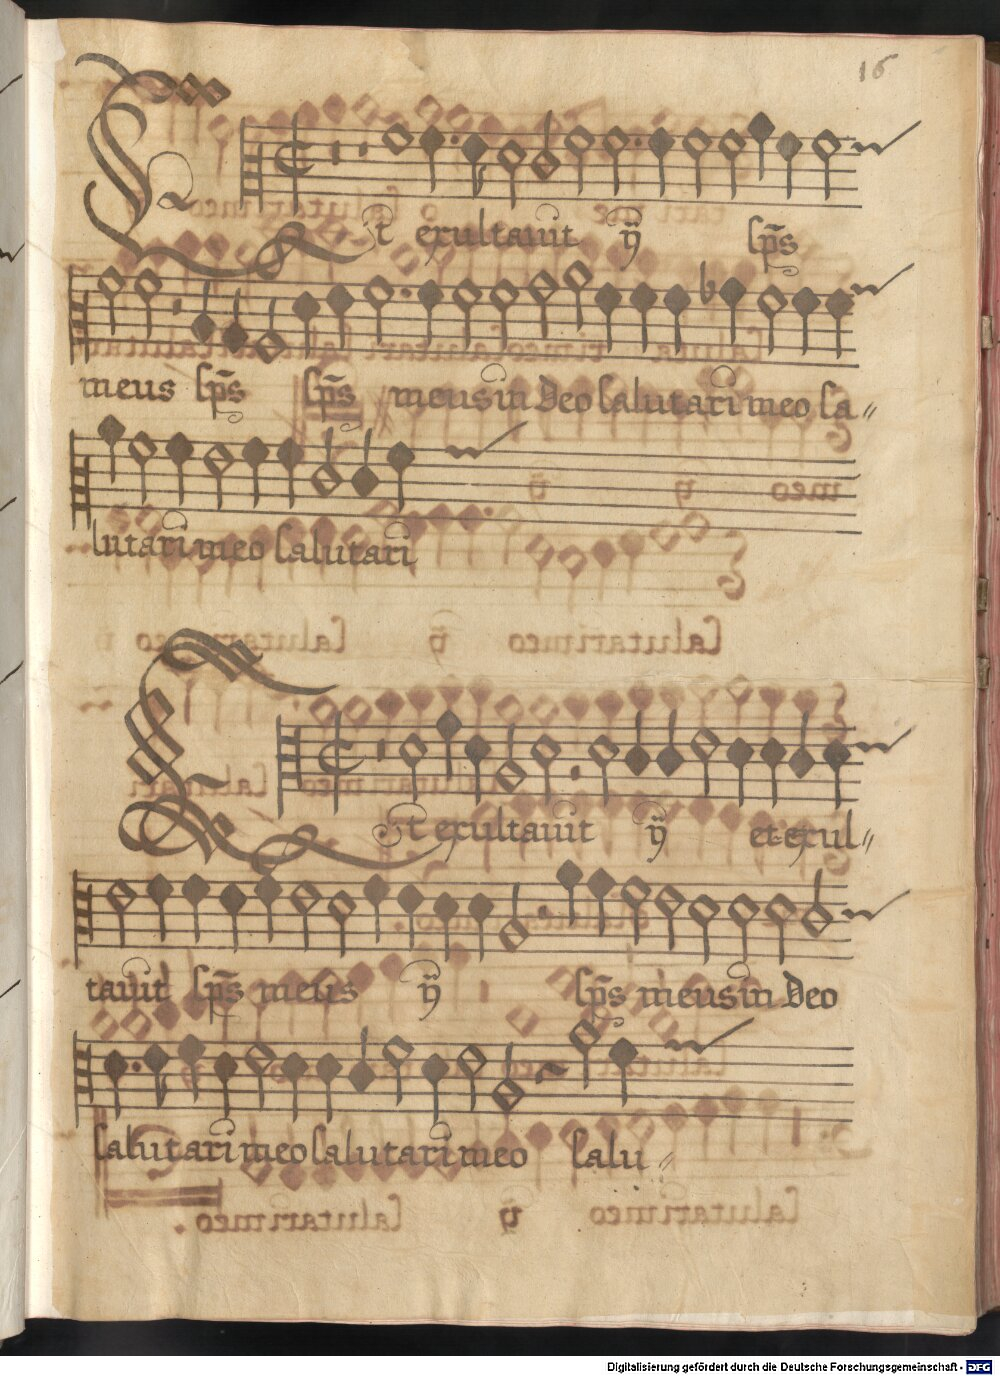 16
Et exultavit ÿ sp̄s
meus sp̄s sp̄s meus in Deo salutari meo sa〃
lutari meo salutari
Et exultavit ÿ et exul〃
tavit sp̄s meus ÿ sp̄s meus in Deo
salutari meo salutari meo salu〃
Digitalisierung gefördert durch die Deutsche Forschungsgemeinschaft - DFG